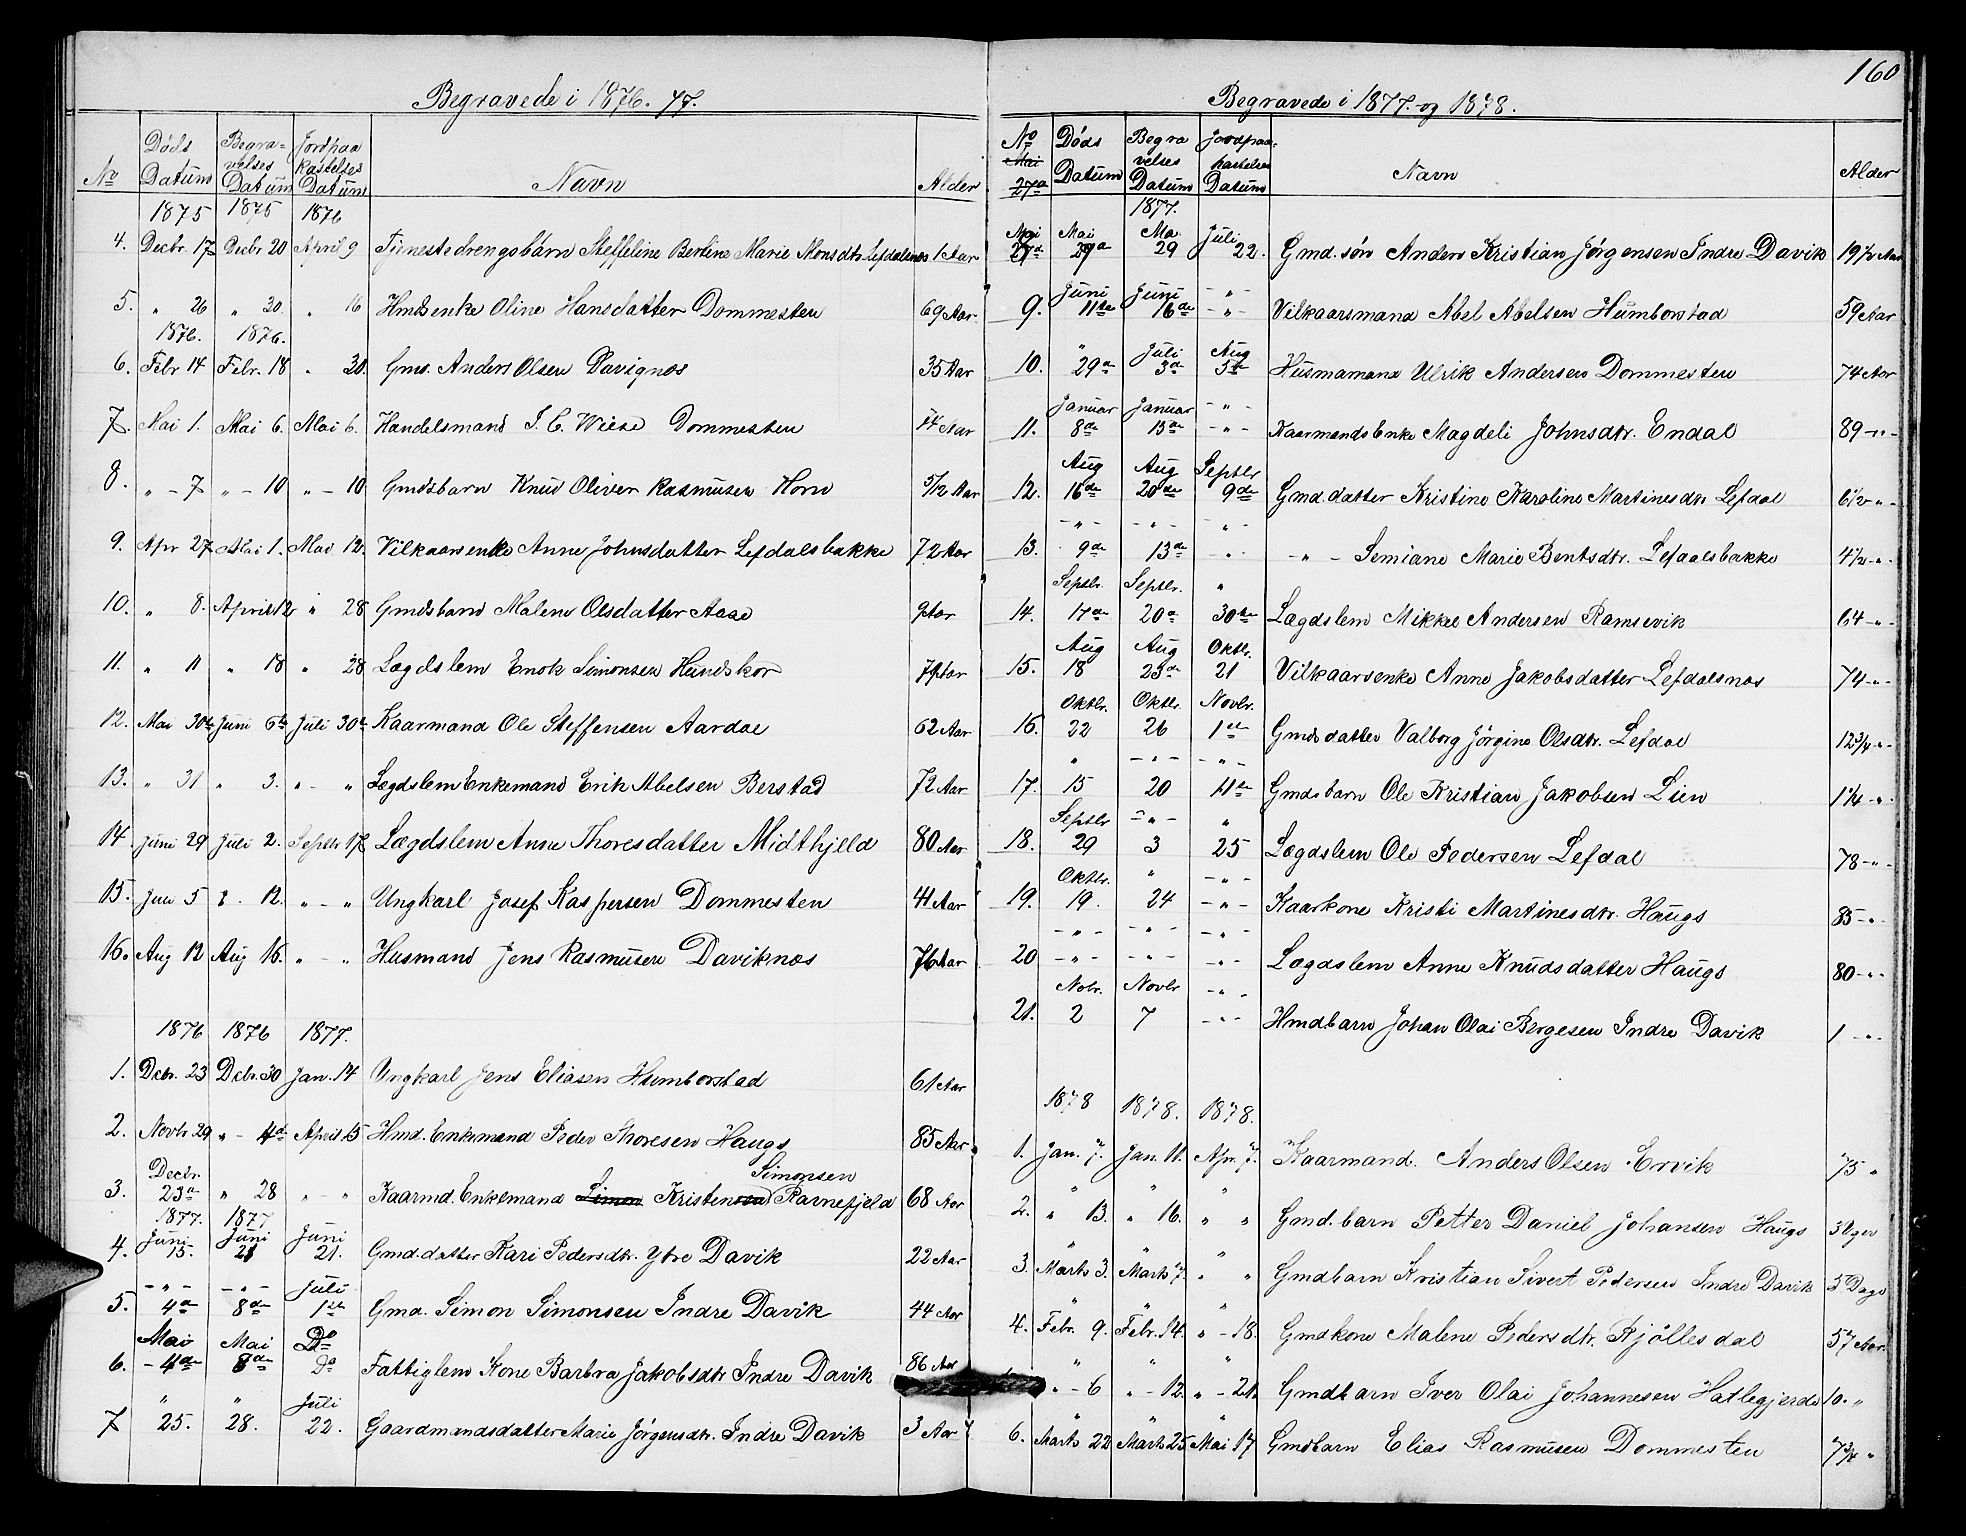 Begravede i 1876. 77.
No Døds Datum Begravelses Datum Jordpaakastelses Datum Navn Alder
1875 1875 1876
4. Decbr. 17 Decbr 20 April 9 Tjenestedrengsbarn Steffeline Bertine Marie Monsdtr. Lefdalsnes 1 Aar
5. " 26 " 30. " 16 Hmdsenke Oline Hansdatter Dommesten 69 Aar.
1876. 1876.
6. Febr 14 Febr. 18 " 30. Gmd. Anders Olsen Davignæs 35 Aar
7. Mai 1. Mai 6. Mai 6. Handelsmand J. C. Wiese Dommesten Aar
8. " - 7 " - 10 " - 10 Gmdsbarn Knud Oliver Rasmusen Horn 5/12 Aar
9. Apr 27 Mai 1. Mai 12. Vilkaarsenke Anne Johnsdatter Lefdalsbakke 72 Aar
10. " 8. April 12 " 28 Gmdsbarn Malene Olsdatter Aase Aar
11. " 11 " 18 " 28 Lægdslem Enok Simonsen Hundskor Aar
12. Mai 30te Juni 6te Juli 30te Kaarmand Ole Steffensen Aardal 62 Aar
13. " 31 " 3. " - " Lægdslem Enkemand Erik Abelsen Berstad 72 Aar
14. Juni 29 Juli 2. Septbr 17 Lægdslem Anne Thoresdatter Midthjeld 80 Aar
15. 5 12. " - " Ungkarl Josef Kaspersen Dommesten 41 Aar
16. Aug 12 Aug 16. " - " Husmand Jens Rasmusen Daviknæs 76 Aar
1876 1876 1877.
1. Dcbr. 23 Dcbr. 30 Jan. 14 Ungkarl Jens Eliasen Humborstad 61 Aar
2. Novbr 29 " - 4de April 15 Hmd. Enkemand Peder Thoresen Haugs 85 Aar
Decbr. Simonsen
3. 23de " 28 " - " Kaarmd. Enkemand Simon Kristensen Ravnefjeld 68 Aar
1877. 1877
Juni Juni Juni
4. 15. 21 21. Gmd. datter Kari Pedersdtr. Ytre Davik 22 Aar
- " - - " - Juli
5. 4de 8de 1ste Gmd. Simon Simonsen Indre Davik 44 Aar
Mai Mai Do
6. - 4de 8de do Fattiglem Kone Barbra Jakobsdtr Indre Davik 86 Aar
" " Juli
7 25. 28. 22. Gaardmandsdatter Marie Jørgensdtr. Indre Davik 3 Aar
160
Begravede i 1877. og 1878.
No Mai 27de Døds Datum Begravelses Datum Jordpaakastelses Datum Navn Alder
1877.
Mai Mai Ma. Juli
29 22. Gmd. søn Anders Kristian Jørgensen Indre Davik 19 1/2 Aar
Juni Juni - " -
9. 11te 16de - " - Vilkaarsmand Abel Abelsen Humborstad 59 Aar
" Juli Aug
10. 29de 3de 5te Husmamand Ulrik Andersen Dommesten 74 Aar
Januar Januar - " -
11. 8de 13de - " - Kaarmands Enke Magdeli Johnsdtr. Endal 89 - " -
Aug Aug Septbr
12. 16de 20de 9de Gmd. datter Kristine Karoline Martinesdtr Lefdal 6 1/2 - " -
- " - - " - - " -
13. 9de 13de - " - - " - Semiane Marie Bentsdtr. Lefdalsbakke 4 1/2 - " -
Septbr. Septbr. "
14. 17de 20de 30te Lægdslem Mikkel Andersen Ramsevik 64 - " -
Aug Aug Oktbr.
15. 18 23de 21 Vilkaarsenke Anne Jakobsdatter Lefdalsnæs 74 - " -
Oktbr. Oktbr. Novbr.
16. 22 26 1ste Gmds datter Valborg Jørgine Olsdtr. Lefdal 12 3/4 - " -
" - " - - " -
17. 15 20 11te Gmdsbarn Ole Kristian Jakobsen Lien 1 1/4 - " -
Septbr - " - "
18. 29 3 25 Lægdslem Ole Pedersen Lefdal 78 - " -
Oktbr. " - " -
19. 19. 24 - " - Kaarkone Kristi Martinesdtr. Haugs 85 - " -
- " - - " - - " -
20 - " - - " - - " - Lægdslem Anne Knudsdatter Haugs 80 - " -
Nobr. Novbr - " -
21. 2 7 - " - Hmdbarn Johan Olai Bergesen Indre Davik 1 - " -
1878 1878. 1878.
1. Jan. 7. Jan. 11. Apr. 7. Kaarmand. Anders Olsen Ervik 75 "
" " "
2. " 13. " 16. " " Gmd. barn Petter Daniel Johansen Haugs 3 Uger
" " "
3. Marts 3. Marts 7. " " Gmdbarn Kristian Sivert Pedersen Indre Davik 5 Dage
" " "
4. Febr. 9. Febr. 14. " - 18. Gmdkone Malene Pedersdtr. Rjøllesdal 57 Aar.
" " "
" - 6 " - 12. " - 21. Gmdbarn Iver Olai Johannesen Hatlegjerde 10. "
" " "
6. Marts 22 Marts 25 Mai 17 Gmdbarn Elias Rasmusen Dommesten 7 3/4 "